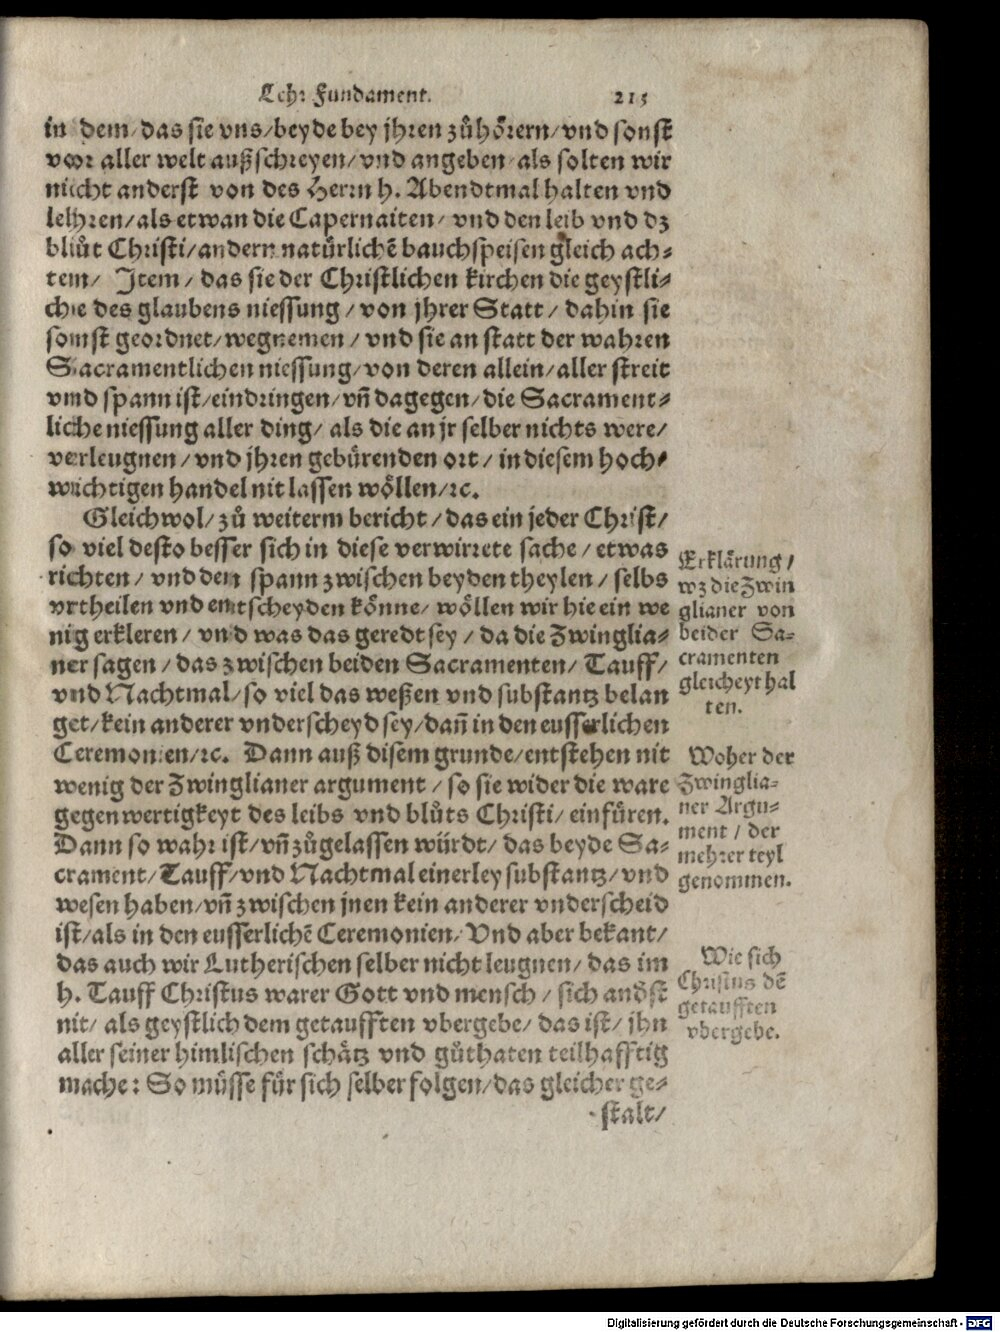 Lehr Fundament. 215
in dem/das sie vns/beyde bey jhren zůhörern/vnd sonst
vor aller welt außschreyen/vnd angeben/als solten wir
nicht anderst von des Herrn h. Abendtmal halten vnd
lehren/als etwan die Capernaiten/ vnd den leib vnd dz
blůt Christi/andern natürlichē bauchspeisen gleich ach⸗
ten/ Item/ das sie der Christlichen kirchen die geystli⸗
che des glaubens niessung/ von jhrer Statt/ dahin sie
sonst geordnet/wegnemen/ vnd sie an statt der wahren
Sacramentlichen niessung/von deren allein/aller streit
vnd spann ist/eindringen/vñ dagegen/die Sacrament⸗
liche niessung aller ding/ als die an jr selber nichts were/
verleugnen/vnd jhren gebürenden ort/ in diesem hoch⸗
wichtigen handel nit lassen wöllen/ꝛc.
Gleichwol/ zů weiterm bericht/das ein jeder Christ/
so viel desto besser sich in diese verwirrete sache/etwas
richten/ vnd den spann zwischen beyden theylen/ selbs
vrtheilen vnd entscheyden könne/ wöllen wir hie ein we
nig erkleren/ vnd was das geredt sey/ da die Zwinglia⸗
ner sagen/das zwischen beiden Sacramenten/ Tauff/
vnd Nachtmal/so viel das weßen vnd substantz belan
get/kein anderer vnderscheyd sey/dañ in den eusserlichen
Ceremonien/ꝛc. Dann auß disem grunde/entstehen nit
wenig der Zwinglianer argument/ so sie wider die ware
gegenwertigkeyt des leibs vnd blůts Christi/einfüren.
Dann so wahr ist/vñ zůgelassen würdt/das beyde Sa⸗
crament/Tauff/vnd Nachtmal einerley substantz/vnd
wesen haben/vñ zwischen jnen kein anderer vnderscheid
ist/als in den eusserlichē Ceremonien/ Vnd aber bekant/
das auch wir Lutherischen selber nicht leugnen/das im
h. Tauff Christus warer Gott vnd mensch/ sich anðst
nit/ als geystlich dem getaufften vbergebe/das ist/ jhn
aller seiner himlischen schätz vnd gůthaten teilhafftig
mache: So müsse für sich selber folgen/das gleicher ge⸗
stalt/
Erklärung/
wz die Zwin
glianer von
beider Sa⸗
cramenten
gleicheyt hal
ten.
Woher der
Zwinglia⸗
ner Argu⸗
ment/ der
mehrer teyl
genommen.
Wie sich
Christus dē
getaufften
vbergebe.
Digitalisierung gefördert durch die Deutsche Forschungsgemeinschaft - DFG